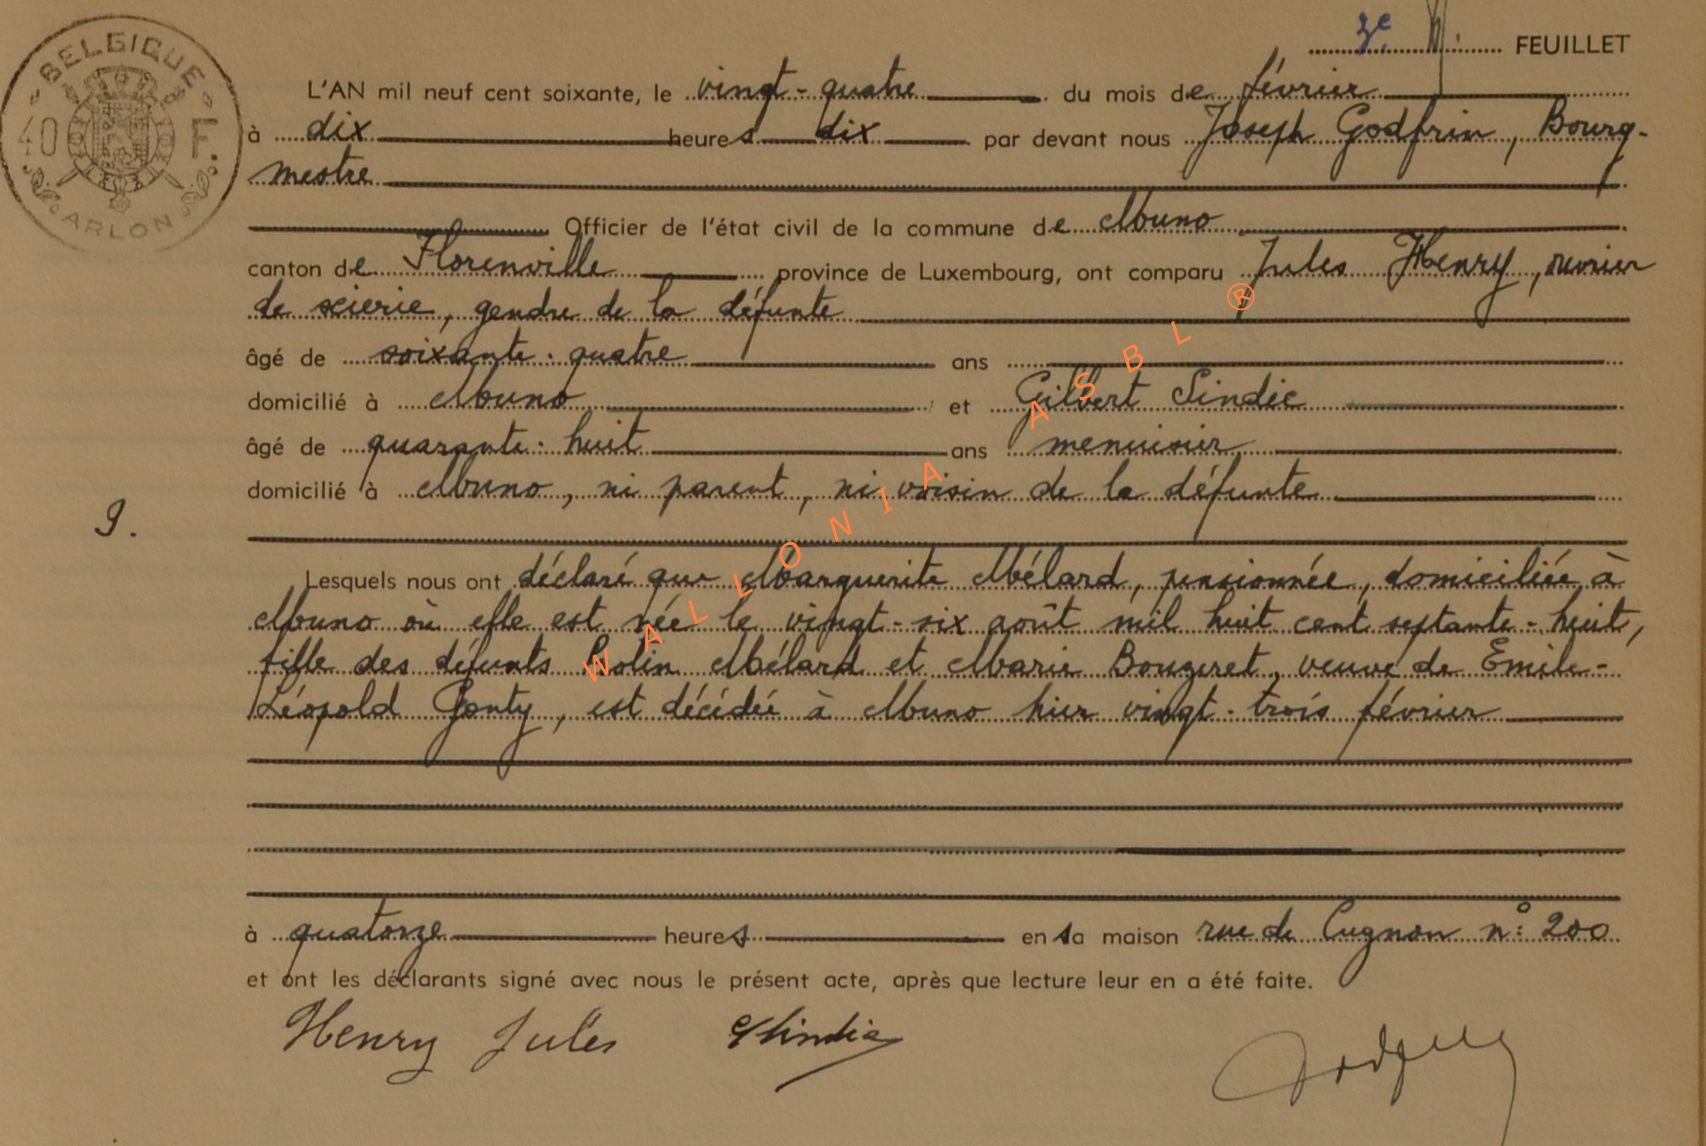 BELGIQUE
40 F.
ARLON
3e FEUILLET
L'AN mil neuf cent soixante, le vingt-quatre du mois de février
à dix heures dix par devant nous Joseph Godfrin, Bourg-
mestre
Officier de l'état civil de la commune de Muno
canton de Florenville province de Luxembourg, ont comparu Jules Henry, ouvrier
de scierie, gendre de la défunte
âgé de soixante-quatre ans
domicilié à Muno et Gilbert Sindic
âgé de quarante-huit ans menuisier
domicilié à Muno, ni parent, ni voisin de la défunte
9.
Lesquels nous ont déclaré que Marguerite Mélard, pensionnée, domiciliée à
Muno où elle est née le vingt-six août mil huit cent septante-huit,
fille des défunts Colin Mélard et Marie Bougeret, veuve de Emile-
Léopold Gonty, est décédée à Muno hier vingt-trois février
à quatorze heures en sa maison rue de Cugnon n° 200
et ont les déclarants signé avec nous le présent acte, après que lecture leur en a été faite.
Henry Jules Sindic
WALLONIA ASBL ®